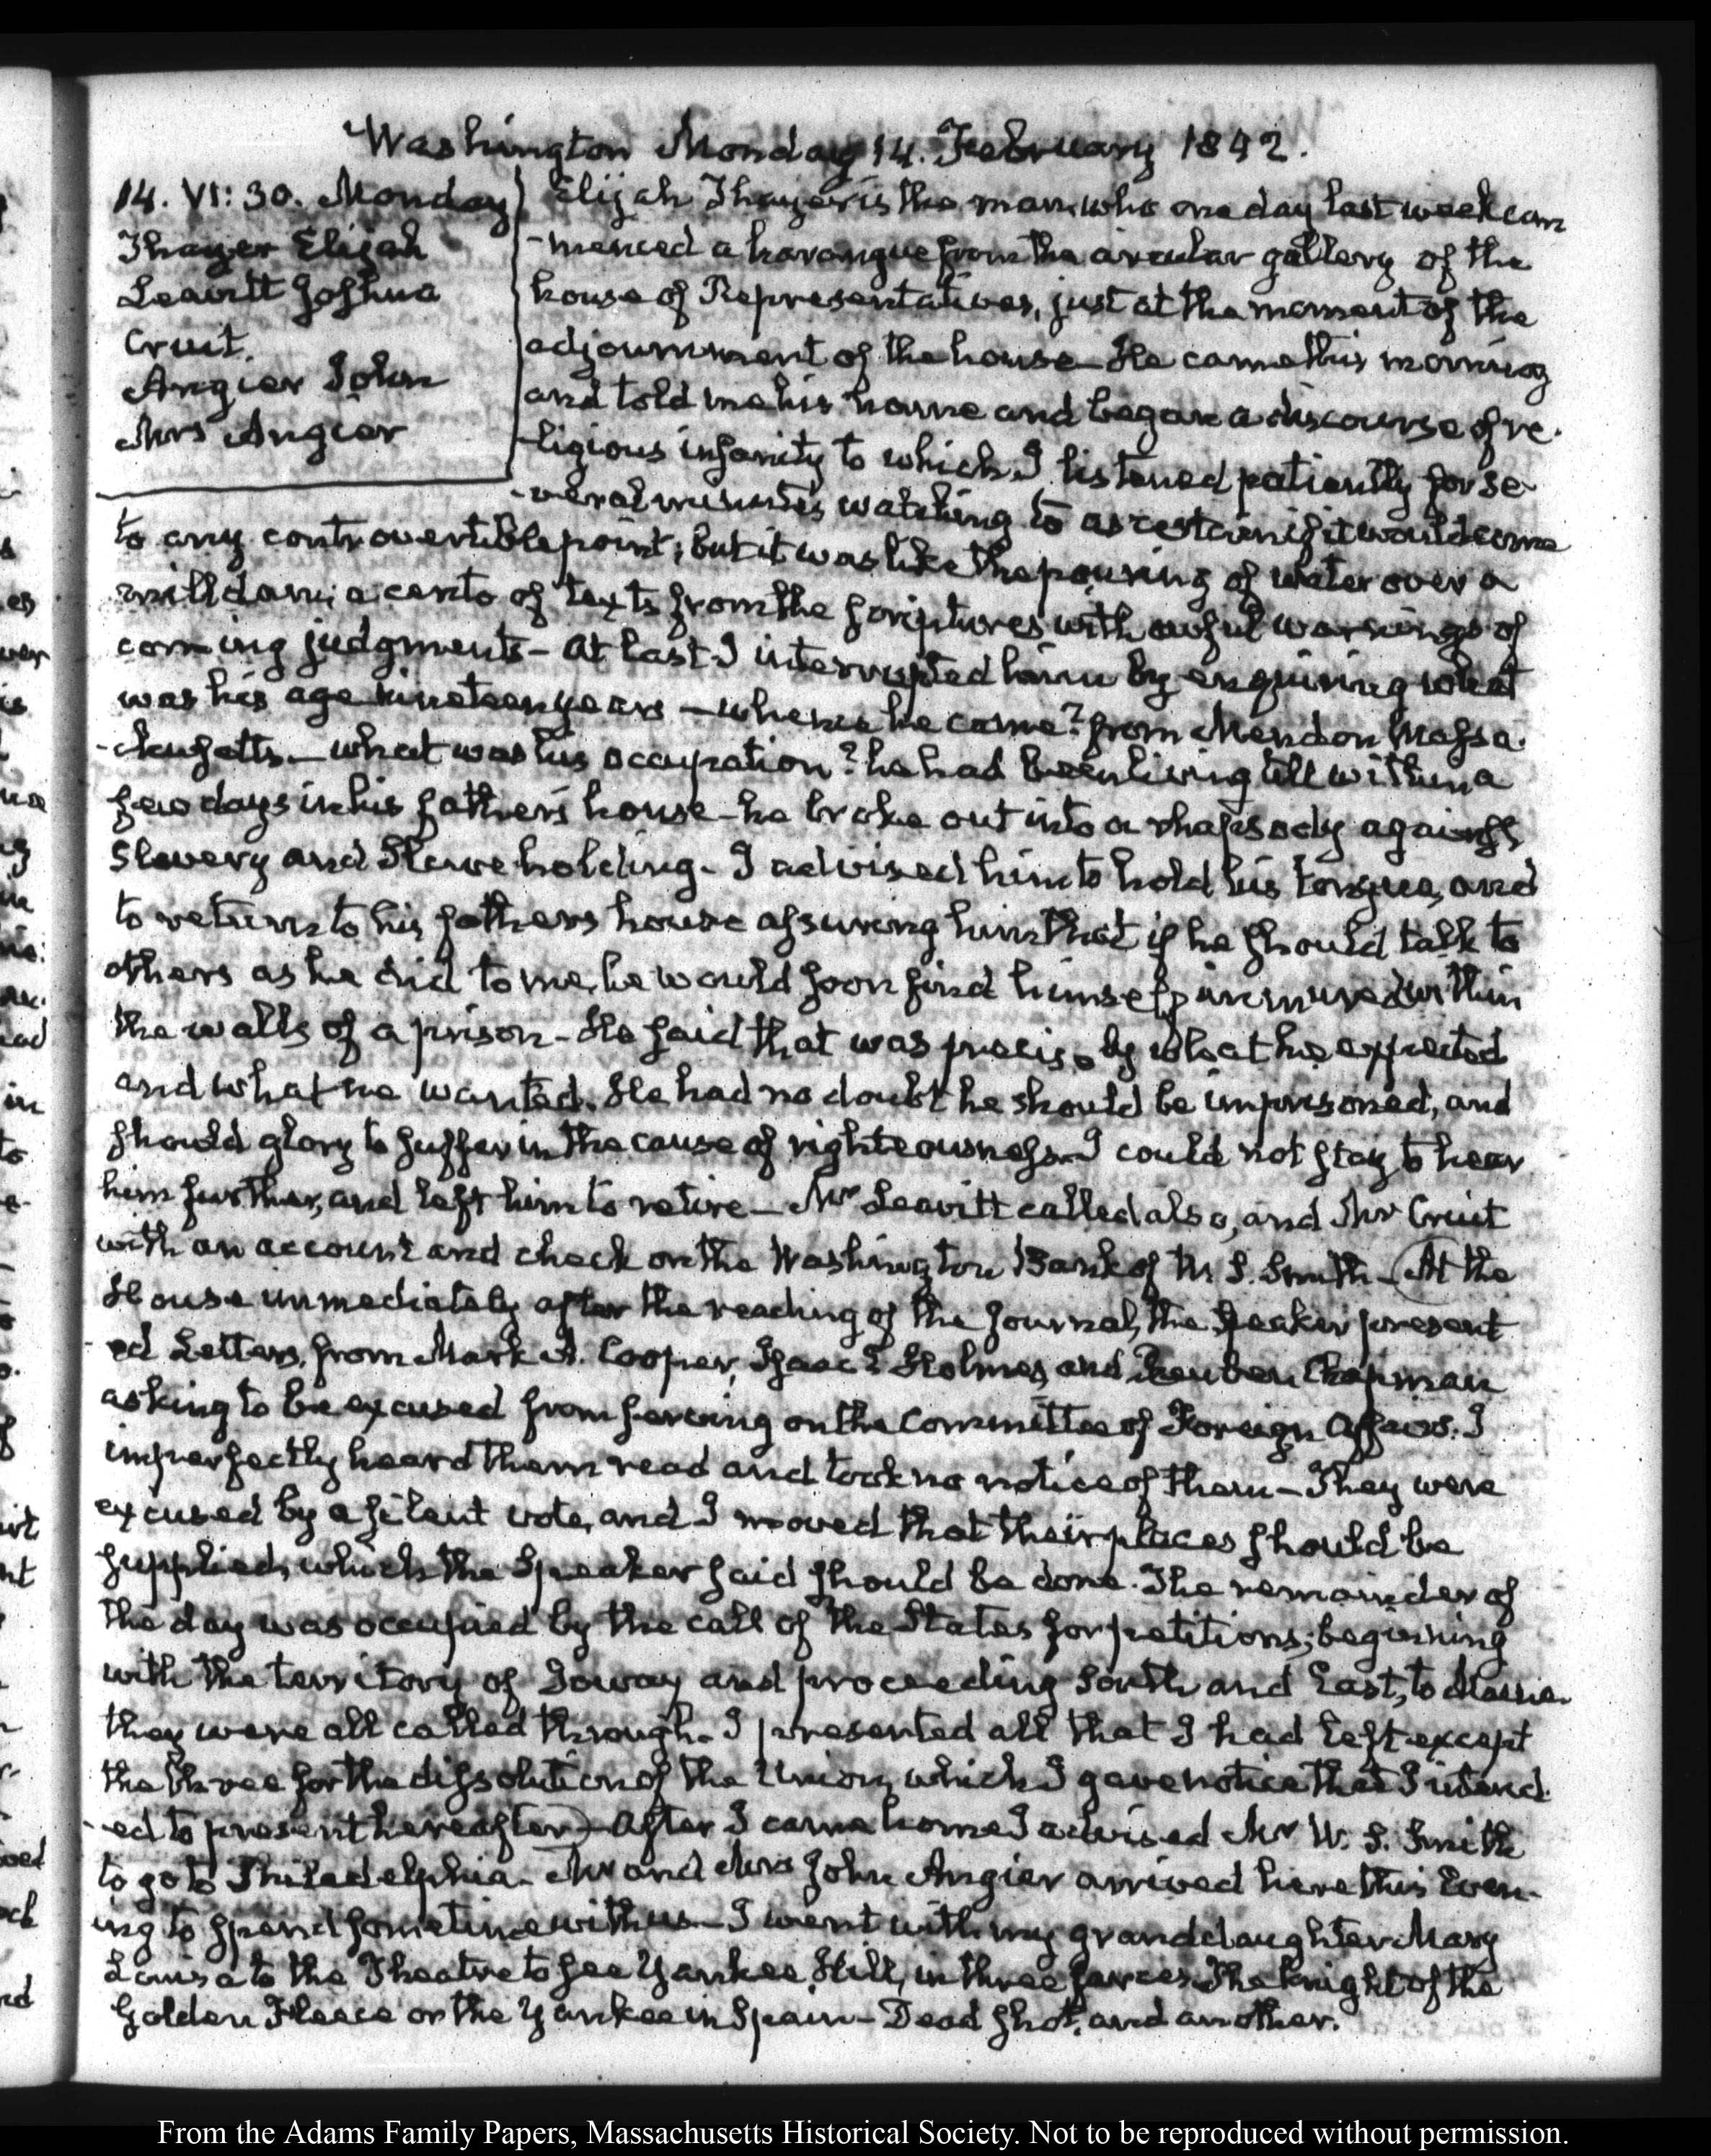 Washington Monday 14. February 1842.
14. VI: 30. Monday
Thayer Elijah
Leavitt Joshua
Cruit.
Angier John
Mrs Angier
Elijah Thayer is the man, who one day last week com
-menced a harangue from the circular gallery of the
house of Representatives, just at the moment of the
adjournment of the house— He came this morning
and told me his name and began a discourse of re-
-ligious insanity to which I listened patiently for se-
-veral minutes watching to ascertain if it would come
to any controvertible point; but it was like the pouring of water over a
milldam; a cento of texts from the scriptures with awful warnings of
coming judgments— At last I interrupted him by enquiring what
was his age nineteen years — whence he came? from Mendon Massa-
-chusetts.— what was his occupation? he had been living till within a
few days in his father's house— he broke out into a rhapsody against
Slavery and Slave holding. I advised him to hold his tongue, and
to return to his fathers house assuring him that if he should talk to
others as he did to me, he would soon find himself immured within
the walls of a prison— He said that was precisely what he expected
and what he wanted. He had no doubt he should be imprisoned, and
should glory to suffer in the cause of righteousness. I could not stay to hear
him further, and left him to retire— Mr Leavitt called also, and Mr Cruit
with an account and check on the Washington Bank of W. S. Smith— (At the
House immediately after the reading of the Journal, the Speaker present
-ed Letters, from Mark A. Cooper, Isaac E Holmes, and Reuben Chapman
asking to be excused from serving on the Committee of Foreign Affairs. I
imperfectly heard them read and took no notice of them— They were
excused by a silent vote, and I moved that their places should be
supplied, which the Speaker said should be done. The remainder of
the day was occupied by the call of the States for petitions; beginning
with the territory of Ioway and proceeding South and East, to Maine.
they were all called through. I presented all that I had left except
the three for the dissolution of the Union, which I gave notice that I intend-
-ed to present hereafter)— After I came home I advised Mr W. S. Smith
to go to Philadelphia. Mr and Mrs John Angier arrived here this Even-
ing to spend some time with us— I went with my granddaughter Mary
Louisa to the Theatre to see Yankee Hill, in three farces. The knight of the
Golden Fleece or the Yankee in Spain— Dead shot, and another.
From the Adams Family Papers, Massachusetts Historical Society. Not to be reproduced without permission.